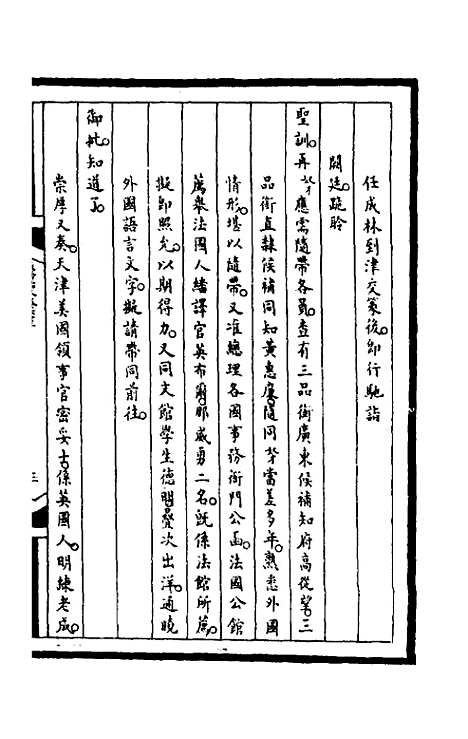 任成林到津交篆後。卽行馳詣
闕廷。跪聆
聖訓。再。奴才應需隨帶各員。查有三品銜廣東候補知府高從望。三
品銜直隸候補同知黃惠廉。隨同奴才當差多年。熟悉外國
情形。堪以隨帶。又准總理各國事務衙門公函。法國公館
薦舉法國人繙譯官英布爾。那威勇二名。旣係法館所薦。
擬卽照允。以期得力。又同文館學生德明。疊次出洋。通曉
外國語言文字。擬請帶同前往。
御批。知道了。
崇厚又奏。天津美國領事官密妥士。係英國人。明練老成。
三